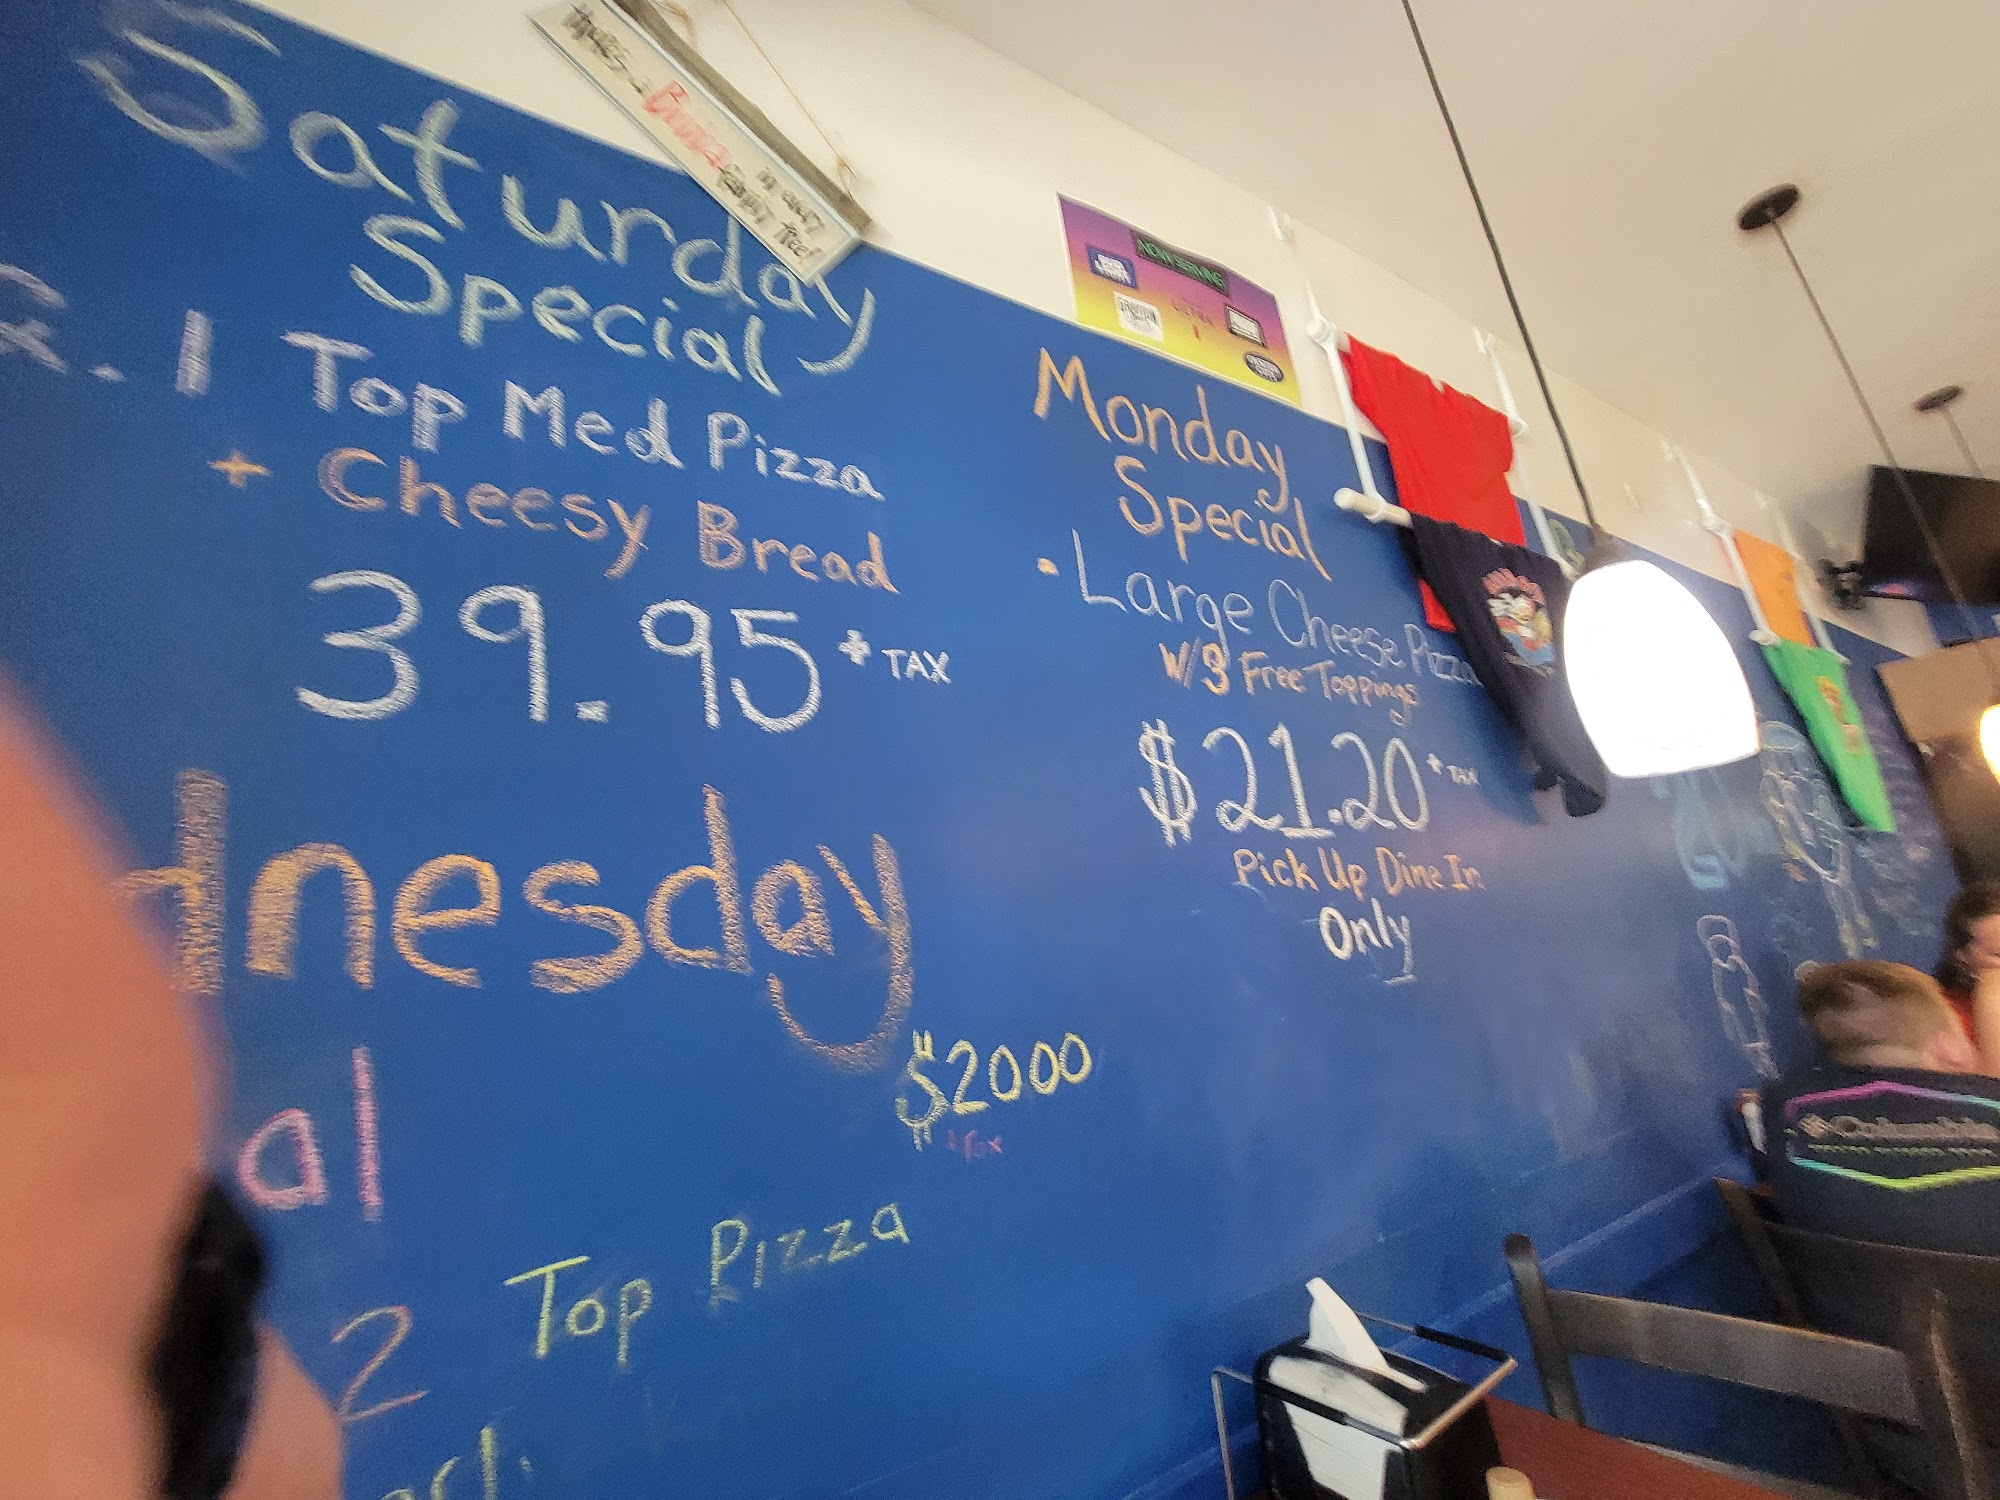 Saturday
Special
2. 1 Top Med Pizza
+ Cheesy Bread
39.95 + TAX
dnesday
al
$20.00
+ Tax
2 Top Pizza
There's a
Pizza
in every
NOW SERVING
Monday
Special
• Large Cheese Pizza
W/3 Free Toppings
$21.20 + TAX
Pick Up Dine In
Only
Columbia